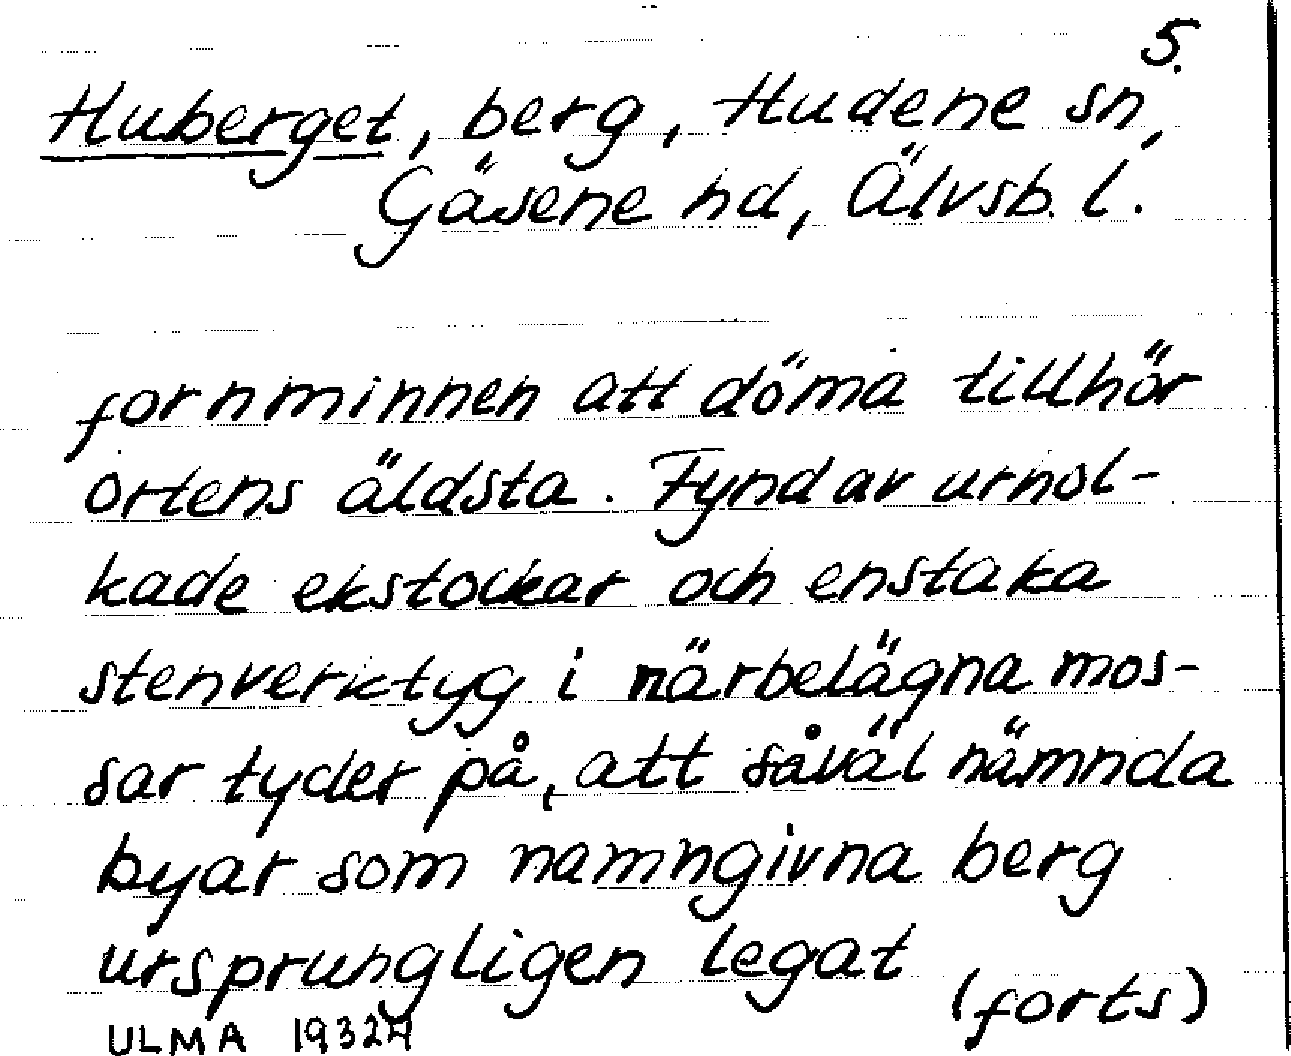 5.
Huberget, berg, Hudene sn,
Gäsene hd, Älvsb. l.
fornminnen att döma tillhör
ortens äldsta. Fynd av urhol-
kade ekstockar och enstaka
stenverktyg i närbelägna mos-
sar tyder på, att såväl nämnda
byar som namngivna berg
ursprungligen legat
(forts)
ULMA 19324